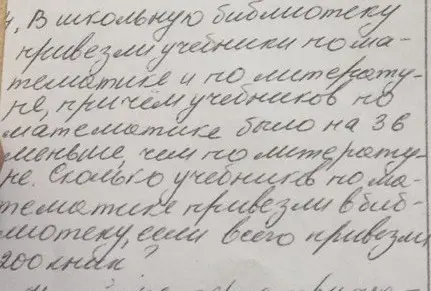 4. В школьную библиотеку
привезли учебники по ма-
тематике и по литерату-
ре, причём учебников по
математике было на 36
меньше, чем по литерату-
ре. Сколько учебников по ма-
тематике привезли в биб-
лиотеку, если всего привезли
200 книг?